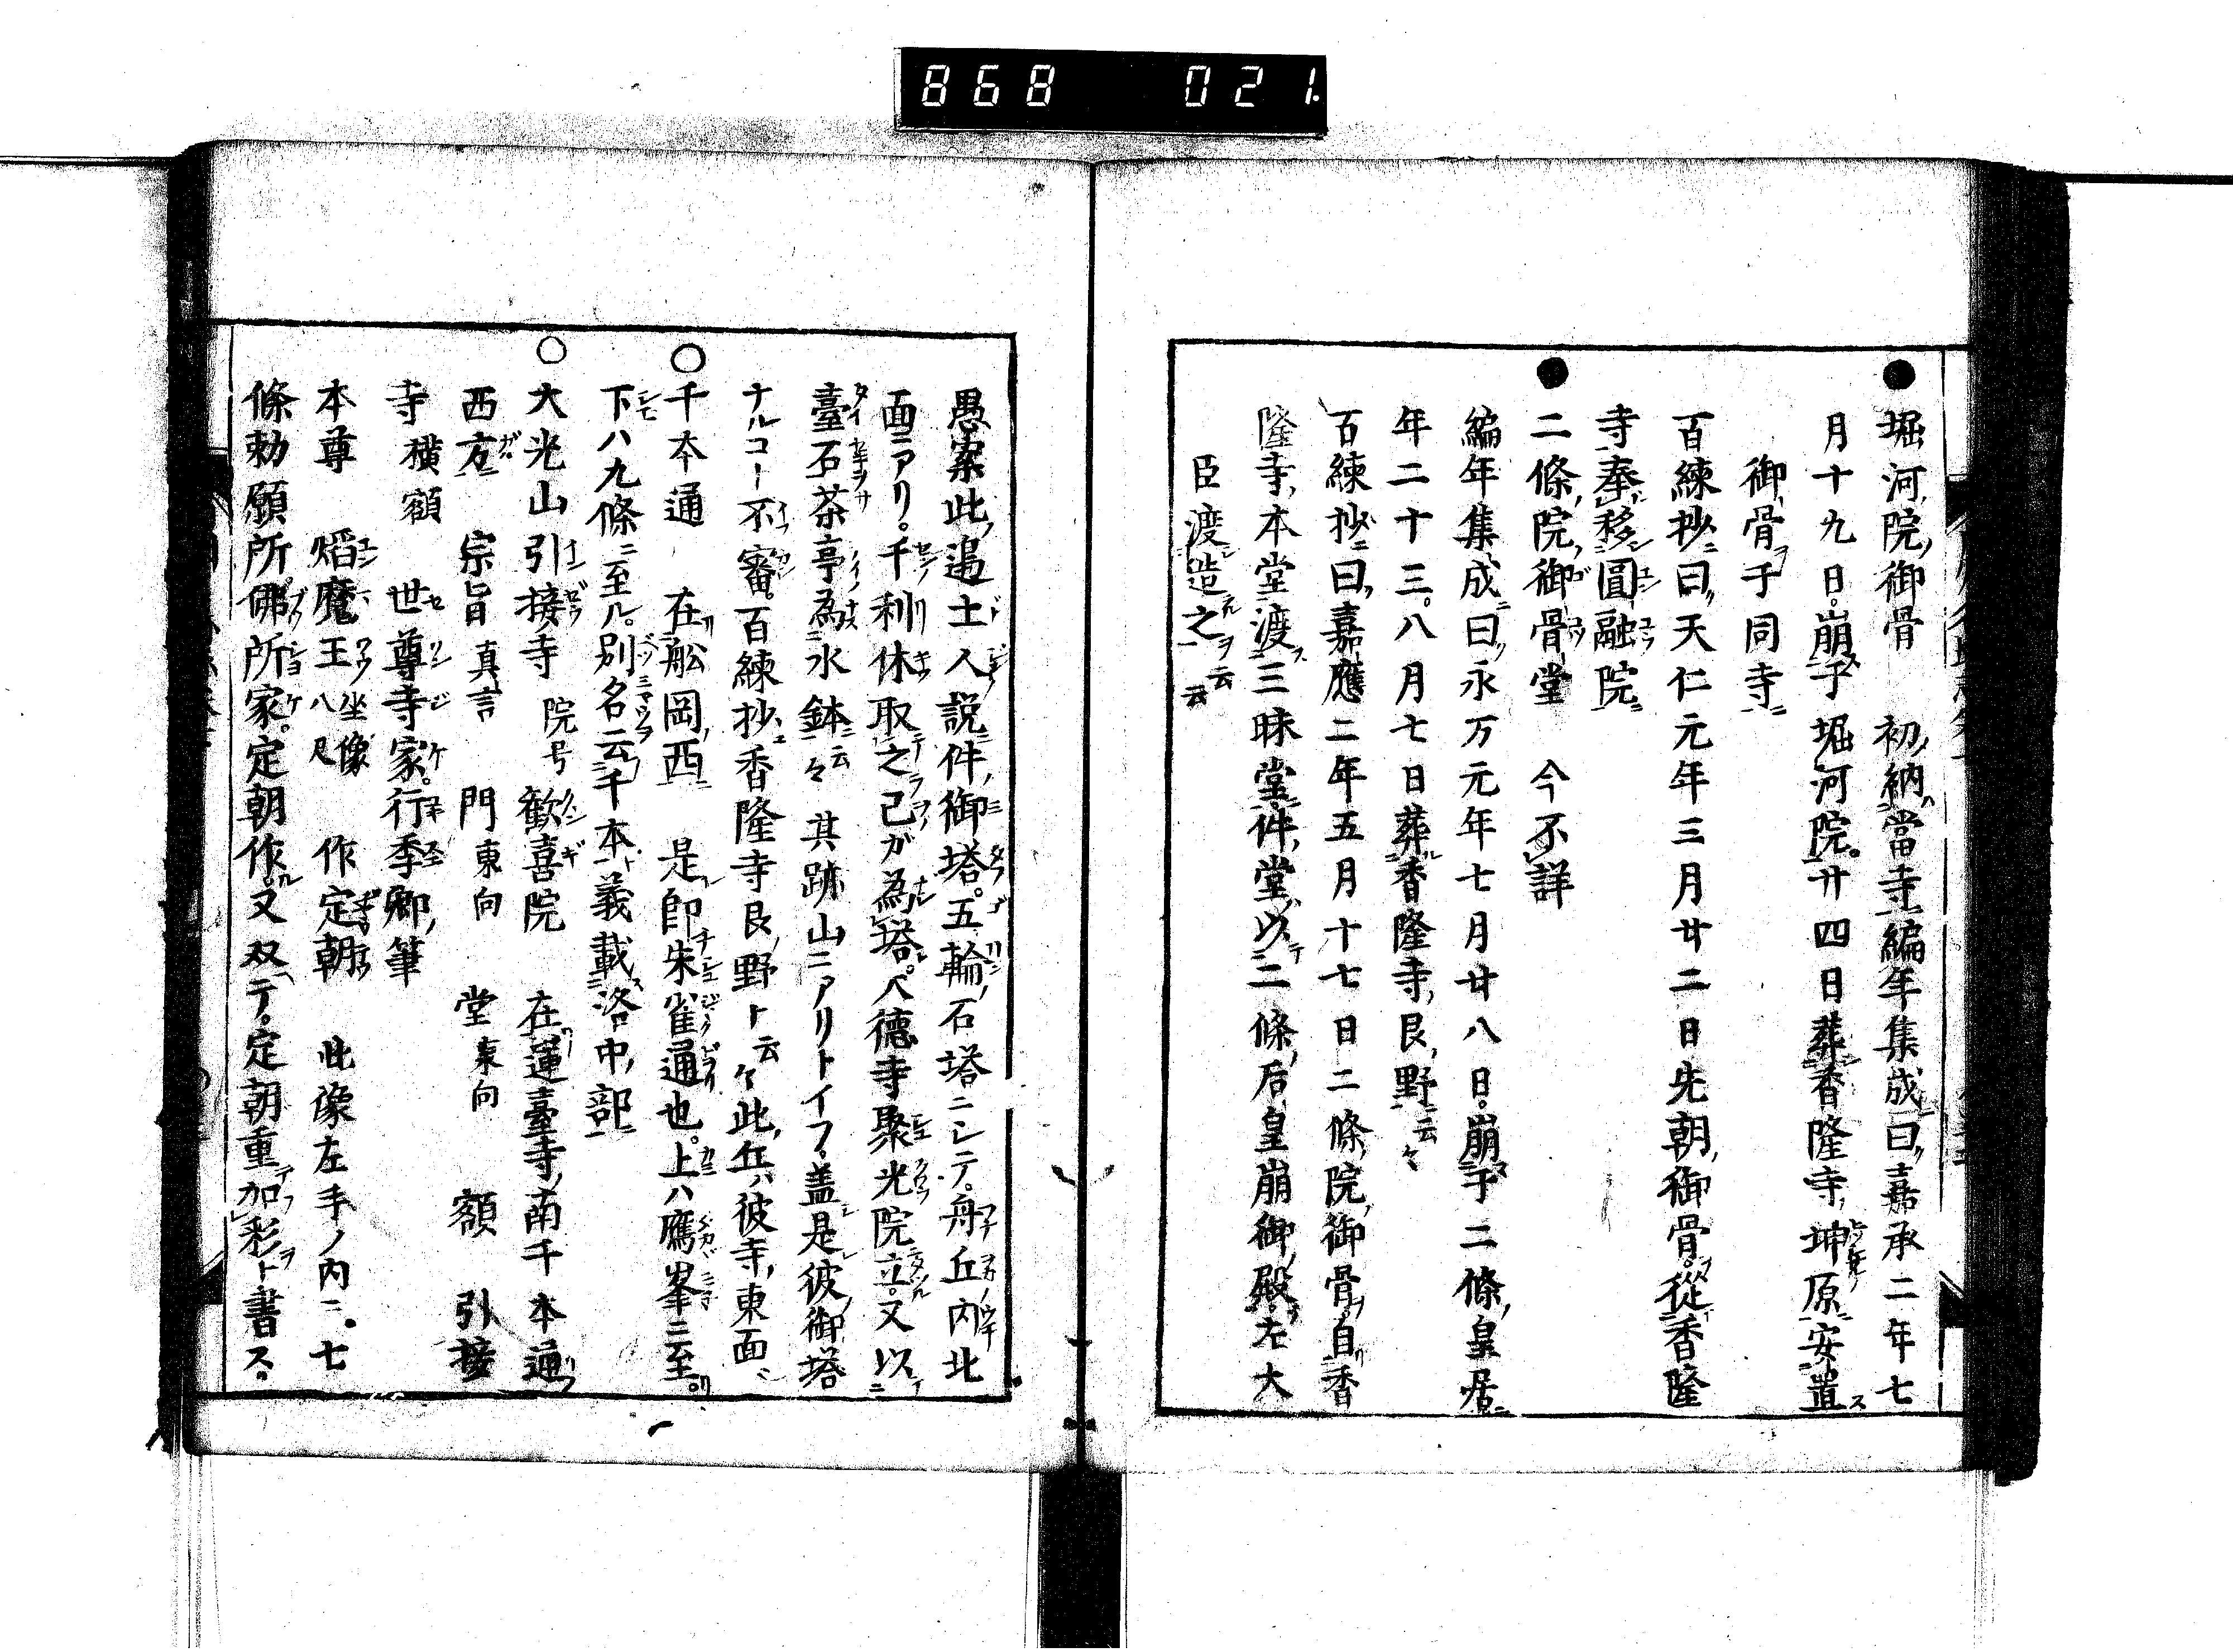 868 021.
●堀河院御骨 初納當寺編年集成曰嘉承二年七
月十九日崩于堀河院廿四日葬香隆寺坤原安置
御骨于同寺
百練抄曰天仁元年三月廿二日先朝御骨從香隆
寺奉移圓融院
●二條院御骨堂 今不詳
編年集成曰永万元年七月廿八日崩于二條皇居
年二十三八月七日葬香隆寺艮野云々
百練抄曰嘉應二年五月十七日二條院御骨自香
隆寺本堂渡三昧堂件堂以二條后皇崩御殿左大
臣渡造之云云
愚案此邉土人説件御塔五輪石塔ニシテ舟丘内北
面ニアリ千利休取之己ガ為塔大德寺聚光院立又以
臺石茶亭為水鉢云々其跡山ニアリトイフ盖是彼御塔
ナルコー不審百練抄香隆寺艮野ト云々此丘ハ彼寺東面
○千本通 在舩岡西 是即朱雀通也上ハ鷹峯ニ至
下ハ九條ニ至ル別名云千本義載洛中部
○大光山引接寺 院号歓喜院 在蓮臺寺南千本通
西方 宗旨真言 門東向 堂東向 額 引接
寺横額 世尊寺家行季卿筆
本尊 焔魔王坐像八尺 作定朝 此像左手ノ内ニ七
條勅願所佛所家定朝作又双テ定朝重加彩ト書ス